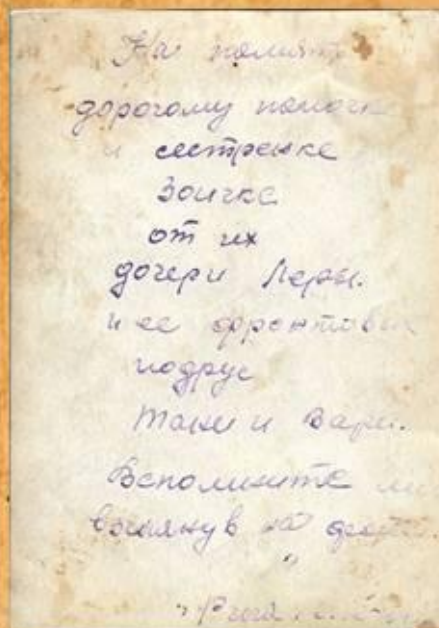 На память
дорогому папочке
и сестренке
Зоичке
от их
дочери Леры.
и ее фронтовых
подруг
Тани и Вари.
Вспомните
взглянув на фото.
"Рига